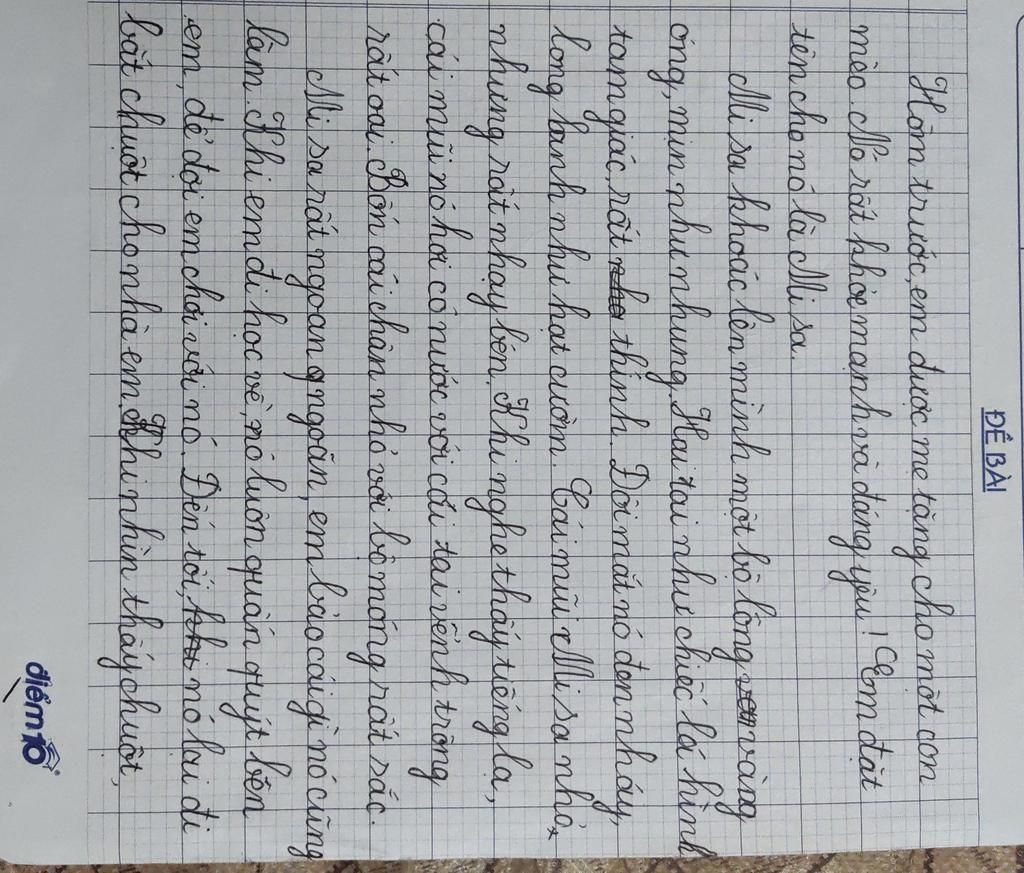 ĐỀ BÀI
Hôm trước, em được mẹ tặng cho một con
mèo. Nó rất khỏe mạnh và đáng yêu! Em đặt
tên cho nó là Mi sa.
Mi sa khoác lên mình một bộ lông vàng
óng, mịn như nhung. Hai tai như chiếc lá hình
tam giác rất thính. Đôi mắt nó đen nháy,
long lanh như hạt cườm. Cái mũi Mi sa nhỏ,
nhưng rất nhạy bén. Khi nghe thấy tiếng lạ,
cái mũi nó hơi có nước với cái tai vểnh trông
rất oai. Bốn cái chân nhỏ với bộ móng rất sắc.
Mi sa rất ngoan ngoãn, em bảo cái gì nó cũng
làm. Khi em đi học về, nó luôn quấn quýt bên
em, để đợi em chơi với nó. Đến tối, nó lại đi
bắt chuột cho nhà em. Khi nhìn thấy chuột,
điểm 10